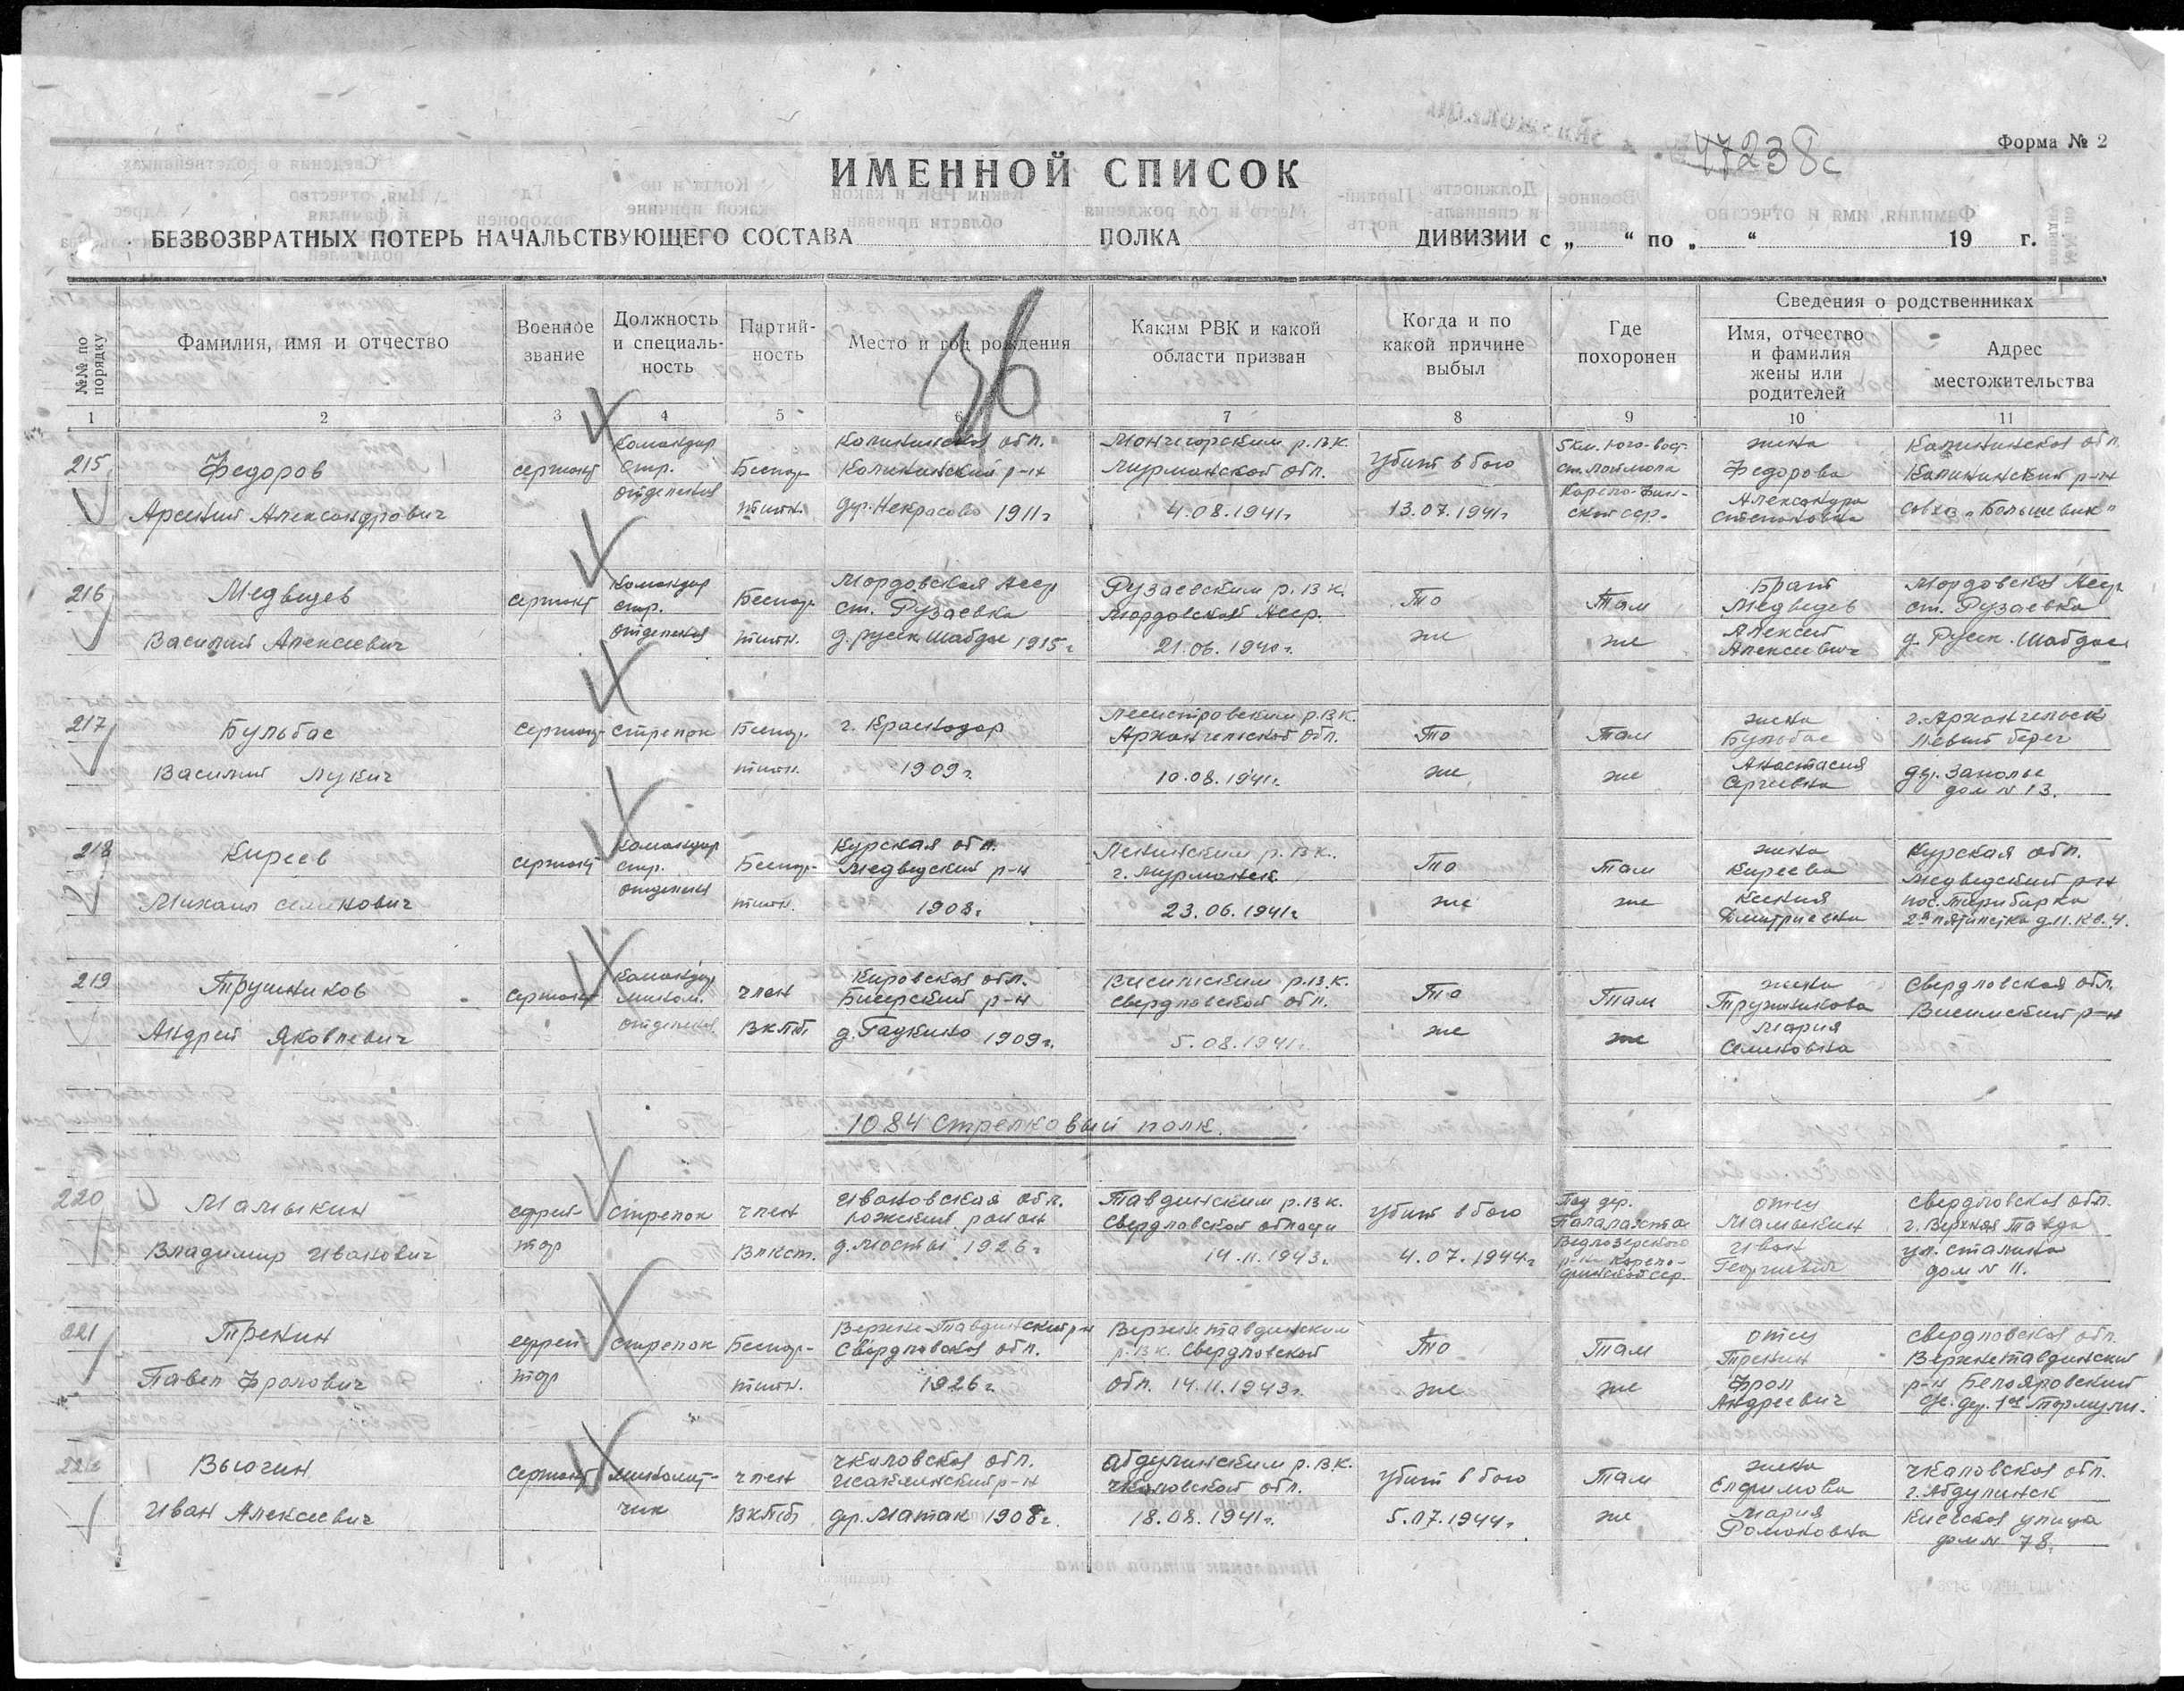 Форма № 2
47238с
ИМЕННОЙ СПИСОК
БЕЗВОЗВРАТНЫХ ПОТЕРЬ НАЧАЛЬСТВУЮЩЕГО СОСТАВА ПОЛКА ДИВИЗИИ с „ “ по „ “ 19 г.
36
№№ по порядку
Фамилия, имя и отчество
Военное звание
Должность и специаль-ность
Партий-ность
Место и год рождения
Каким РВК и какой области призван
Когда и по какой причине выбыл
Где похоронен
Сведения о родственниках
Имя, отчество и фамилия жены или родителей
Адрес местожительства
1 2 3 4 5 6 7 8 9 10 11
215 Федоров Арсений Александрович
сержант
Командир стр. отделения
Беспар-тийн.
Калининская обл. Калининский р-н дер. Некрасово 1911г
Мончегорским р.в.к. Мурманской обл. 4.08.1941г
Убит в бою 13.07.1941г
5 км. юго-вост. ст. Лоймола Карело-Фин-ской ССР.
жена Федорова Александра Степановна
Калининская обл. Калининский р-н совхоз „Большевик“
216 Медведев Василий Алексеевич
сержант
Командир стр. отделения
Беспар-тийн.
Мордовская Асср ст. Рузаевка 1915г
Рузаевским р.в.к. Мордовской Асср. 21.06.1940г.
То же
Там же
Брат Медведев Алексей Алексеевич
Мордовская Асср. ст. Рузаевка
217 Бульбас Василий Лукич
сержант
стрелок
Беспар-тийн.
г. Краснодар 1909г.
р.в.к. Архангельской обл. 10.08.1941г.
То же
Там же
жена Бульбас Анастасия Сергеевна
г. Архангельск Левый берег дер. Заполье дом № 13.
218 Киреев Михаил Семенович
сержант
Командир стр. отделения
Беспар-тийн.
Курская обл. р-н 1908г
Ленинским р.в.к. г. Мурманск 23.06.1941г
То же
Там же
жена Киреева Ксения Дмитриевна
Курская обл. р-н
219 Трушников Андрей Яковлевич
сержант
Командир мином. отделения
член ВКПб
Кировская обл. Бисерский р-н 1909г.
Висимским р.в.к. Свердловской обл. 5.08.1941г.
То же
Там же
жена Трушникова Мария Семеновна
Свердловская обл. Висимский р-н
1084 Стрелковый полк.
220 Малыкин Владимир Иванович
ефрей-тор
стрелок
член Влксм.
Ивановская обл. район д. Мосты 1926г
Тавдинским р.в.к. Свердловской области 14.11.1943г.
Убит в бою 4.07.1944г
Под дер. Ведлозерского р-на Карело-финской сср.
отец Малыкин Иван Георгиевич
Свердловская обл. г. Верхняя Тавда ул. Сталина дом № 11.
221 Тренин Павел Фролович
ефрей-тор
стрелок
Беспар-тийн.
Верхне-Тавдинский р-н Свердловская обл. 1926г.
Верхнетавдинским р.в.к. Свердловской обл. 14.11.1943г.
То же
Там же
отец Тренин Фрол Андреевич
Свердловская обл. Верхнетавдинский р-н
222 Вьюгин Иван Алексеевич
сержант
миномет-чик
член ВКПб
Чкаловская обл. р-н дер. Матак 1908г.
Абдулинским р.в.к. Чкаловской обл. 18.08.1941г.
Убит в бою 5.07.1944г
Там же
жена Елфимова Мария Романовна
Чкаловская обл. г. Абдулинск Киевская улица дом № 78.